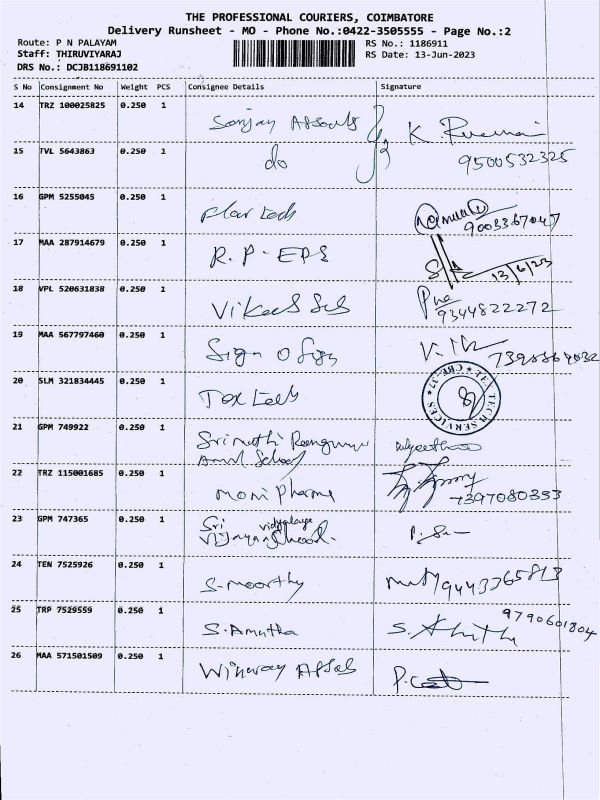 THE PROFESSIONAL COURIERS, COIMBATORE
Delivery Runsheet - MO - Phone No.:0422-3505555 - Page No.:2
Route: P N PALAYAM
RS No.: 1186911
Staff: THIRUVIYARAJ
RS Date: 13-Jun-2023
DRS No.: DCJB118691102
S No Consignment No Weight PCS Consignee Details Signature
14 TRZ 100025825 0.250 1
Sanjay K.
15 TVL 5643863 0.250 1 do 9500532325
16 GPM 5255045 0.250 1
9003367047
17 MAA 287914679 0.250 1
R.P-EPS 13/6/23
18 VPL 520631838 0.250 1
9344822272
19 MAA 567797460 0.250 1
Sign O Sign
20 SLM 321834445 0.250 1
Tex Tech TECH SERVICES
21 GPM 749922 0.250 1
School
22 TRZ 115001685 0.250 1
Moni Pharma 7397080333
23 GPM 747365 0.250 1
Sri vidyalaya
Vijayan School
24 TEN 7525926 0.250 1
S. Moorthy 9443365813
25 TRP 7529559 0.250 1 9790601804
S. Amutha
26 MAA 571501509 0.250 1